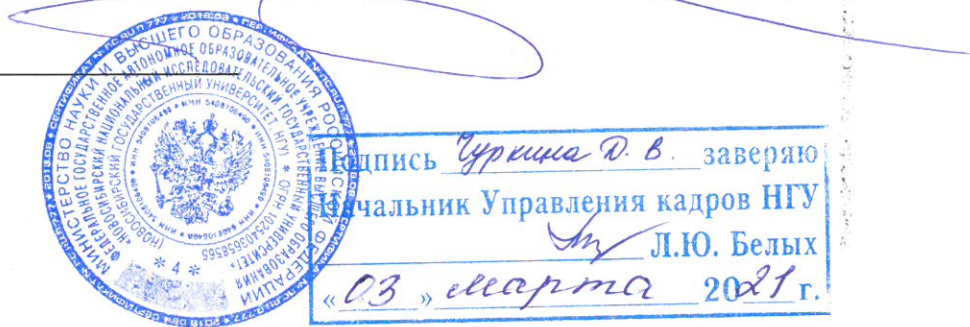 МИНИСТЕРСТВО НАУКИ И ВЫСШЕГО ОБРАЗОВАНИЯ РОССИЙСКОЙ ФЕДЕРАЦИИ
ФЕДЕРАЛЬНОЕ ГОСУДАРСТВЕННОЕ АВТОНОМНОЕ ОБРАЗОВАТЕЛЬНОЕ УЧРЕЖДЕНИЕ ВЫСШЕГО ОБРАЗОВАНИЯ
«НОВОСИБИРСКИЙ НАЦИОНАЛЬНЫЙ ИССЛЕДОВАТЕЛЬСКИЙ ГОСУДАРСТВЕННЫЙ УНИВЕРСИТЕТ»
(НОВОСИБИРСКИЙ ГОСУДАРСТВЕННЫЙ УНИВЕРСИТЕТ, НГУ) * ОГРН 1025403658565
* ИНН 5408106490 *
* 4 *
Подпись Чуркина Д. В. заверяю
Начальник Управления кадров НГУ
Л.Ю. Белых
«03» марта 2021 г.